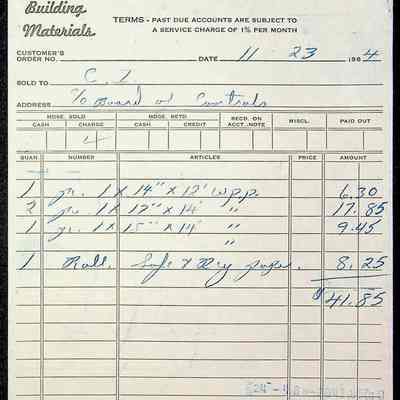 Building
Materials
TERMS - PAST DUE ACCOUNTS ARE SUBJECT TO
A SERVICE CHARGE OF 1% PER MONTH
CUSTOMER'S
ORDER NO. DATE 11 23 1964
SOLD TO C. I.
ADDRESS c/o Board of Controls
MDSE. SOLD MDSE. RETD. REC'D. ON ACCT.-NOTE MISCL. PAID OUT
CASH CHARGE CASH CREDIT
QUAN. NUMBER ARTICLES PRICE AMOUNT
1 pc. 1 X 14" X 12' w.p.p. 6.30
2 pc. 1 X 12" X 14' " 17.85
1 pc. 1 X 15" X 14' " 9.45
"
1 Roll. paper. 8.25
$41.85